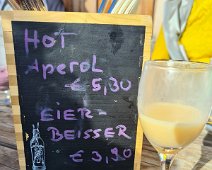 HOT
Aperol
€ 5,30
EIER-
BEISSER
€ 3,90